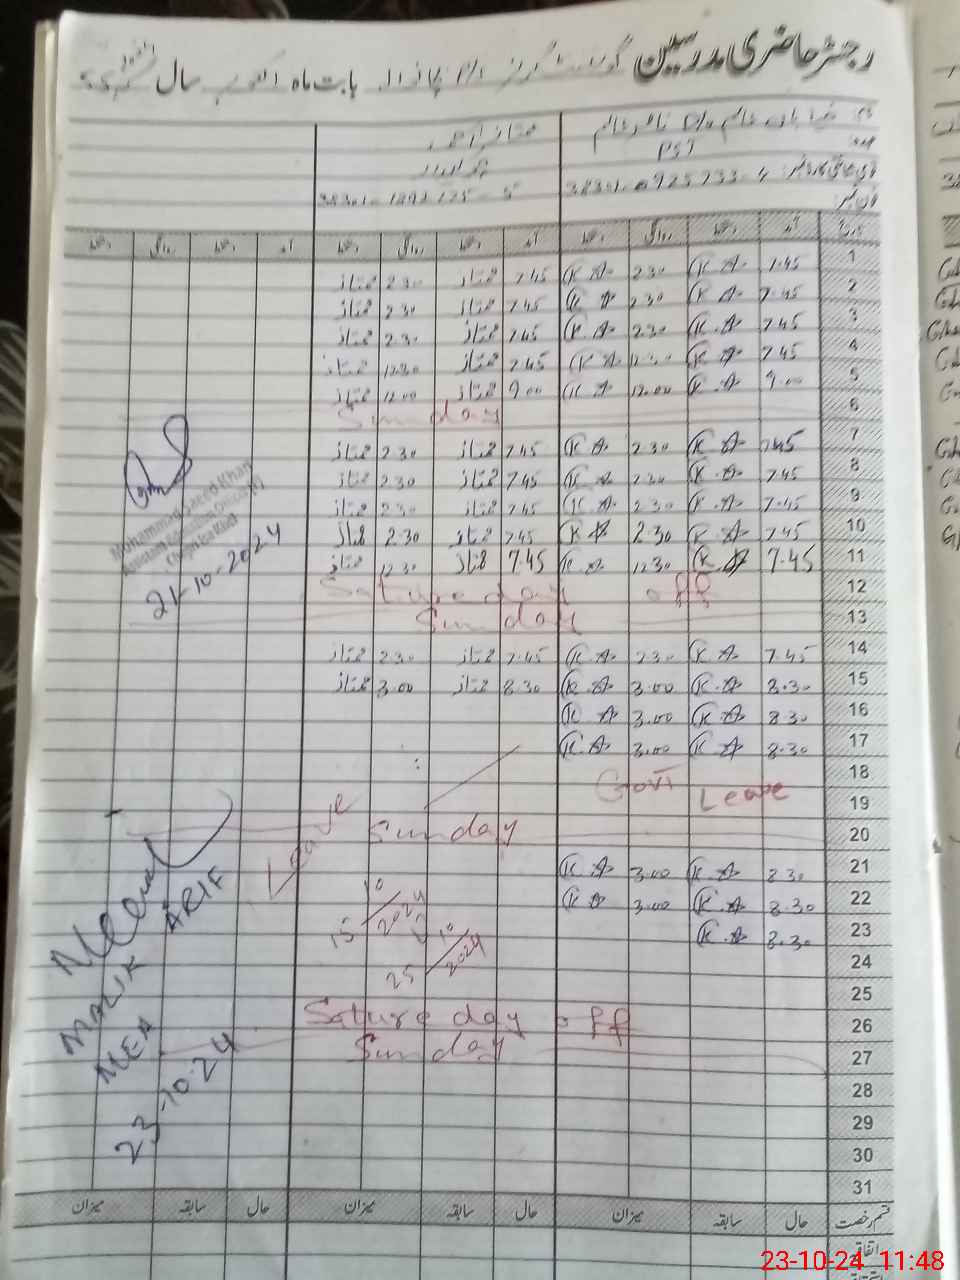 رجسٹر حاضری مدرسین گورنمنٹ گرلز بابت ماہ اکتوبر سال
نام
ممتاز احمد
PST
چوکیدار
قومی شناختی کارڈ نمبر
فون نمبر
تاریخ آمد دستخط روانگی دستخط آمد دستخط روانگی دستخط آمد دستخط روانگی دستخط
1 7.45 K.A 2.30 K.A 7.45 ممتاز 2.30 ممتاز
2 7.45 K.A 2.30 K.A 7.45 ممتاز 2.30 ممتاز
3 7.45 K.A 2.30 K.A 7.45 ممتاز 2.30 ممتاز
4 7.45 K.A 12.30 K.A 7.45 ممتاز 12.30 ممتاز
5 9.00 K.A 12.00 K.A 9.00 ممتاز 12.00 ممتاز
6 Sunday
7 7.45 K.A 2.30 K.A 7.45 ممتاز 2.30 ممتاز
8 7.45 K.A 2.30 K.A 7.45 ممتاز 2.30 ممتاز
9 7.45 K.A 2.30 K.A 7.45 ممتاز 2.30 ممتاز
10 7.45 K.A 2.30 K.A 7.45 ممتاز 2.30 ممتاز
11 7.45 K.A 12.30 K.A 7.45 ممتاز 12.30 ممتاز
12 Satureday off
13 Sunday
14 7.45 K.A 2.30 K.A 7.45 ممتاز 2.30 ممتاز
15 8.30 K.A 3.00 K.A 8.30 ممتاز 3.00 ممتاز
16 8.30 K.A 3.00 K.A
17 8.30 K.A 3.00 K.A
18 Govt
19 Leave
20 Sunday
21 8.30 K.A 3.00 K.A
22 8.30 K.A 3.00 K.A
23 8.30 K.A
24
25
26 Satureday off
27 Sunday
28
29
30
31
Leave
15/10/2024
25/10/2024
Muhammad Saeed Khan
Assistant Education Officer
21-10-2024
MALIK ARIF
MEA
23-10-24
قسم رخصت حال سابقہ میزان حال سابقہ میزان حال سابقہ میزان
اتفاقیہ
23-10-24 11:48